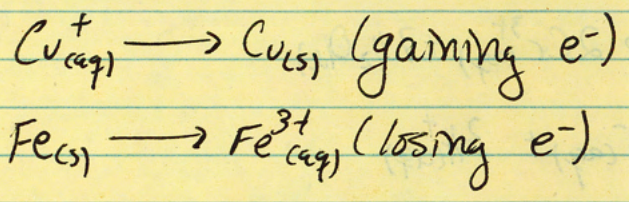 Cu⁺(aq) ⟶ Cu(s) (gaining e⁻)
Fe(s) ⟶ Fe³⁺(aq) (losing e⁻)